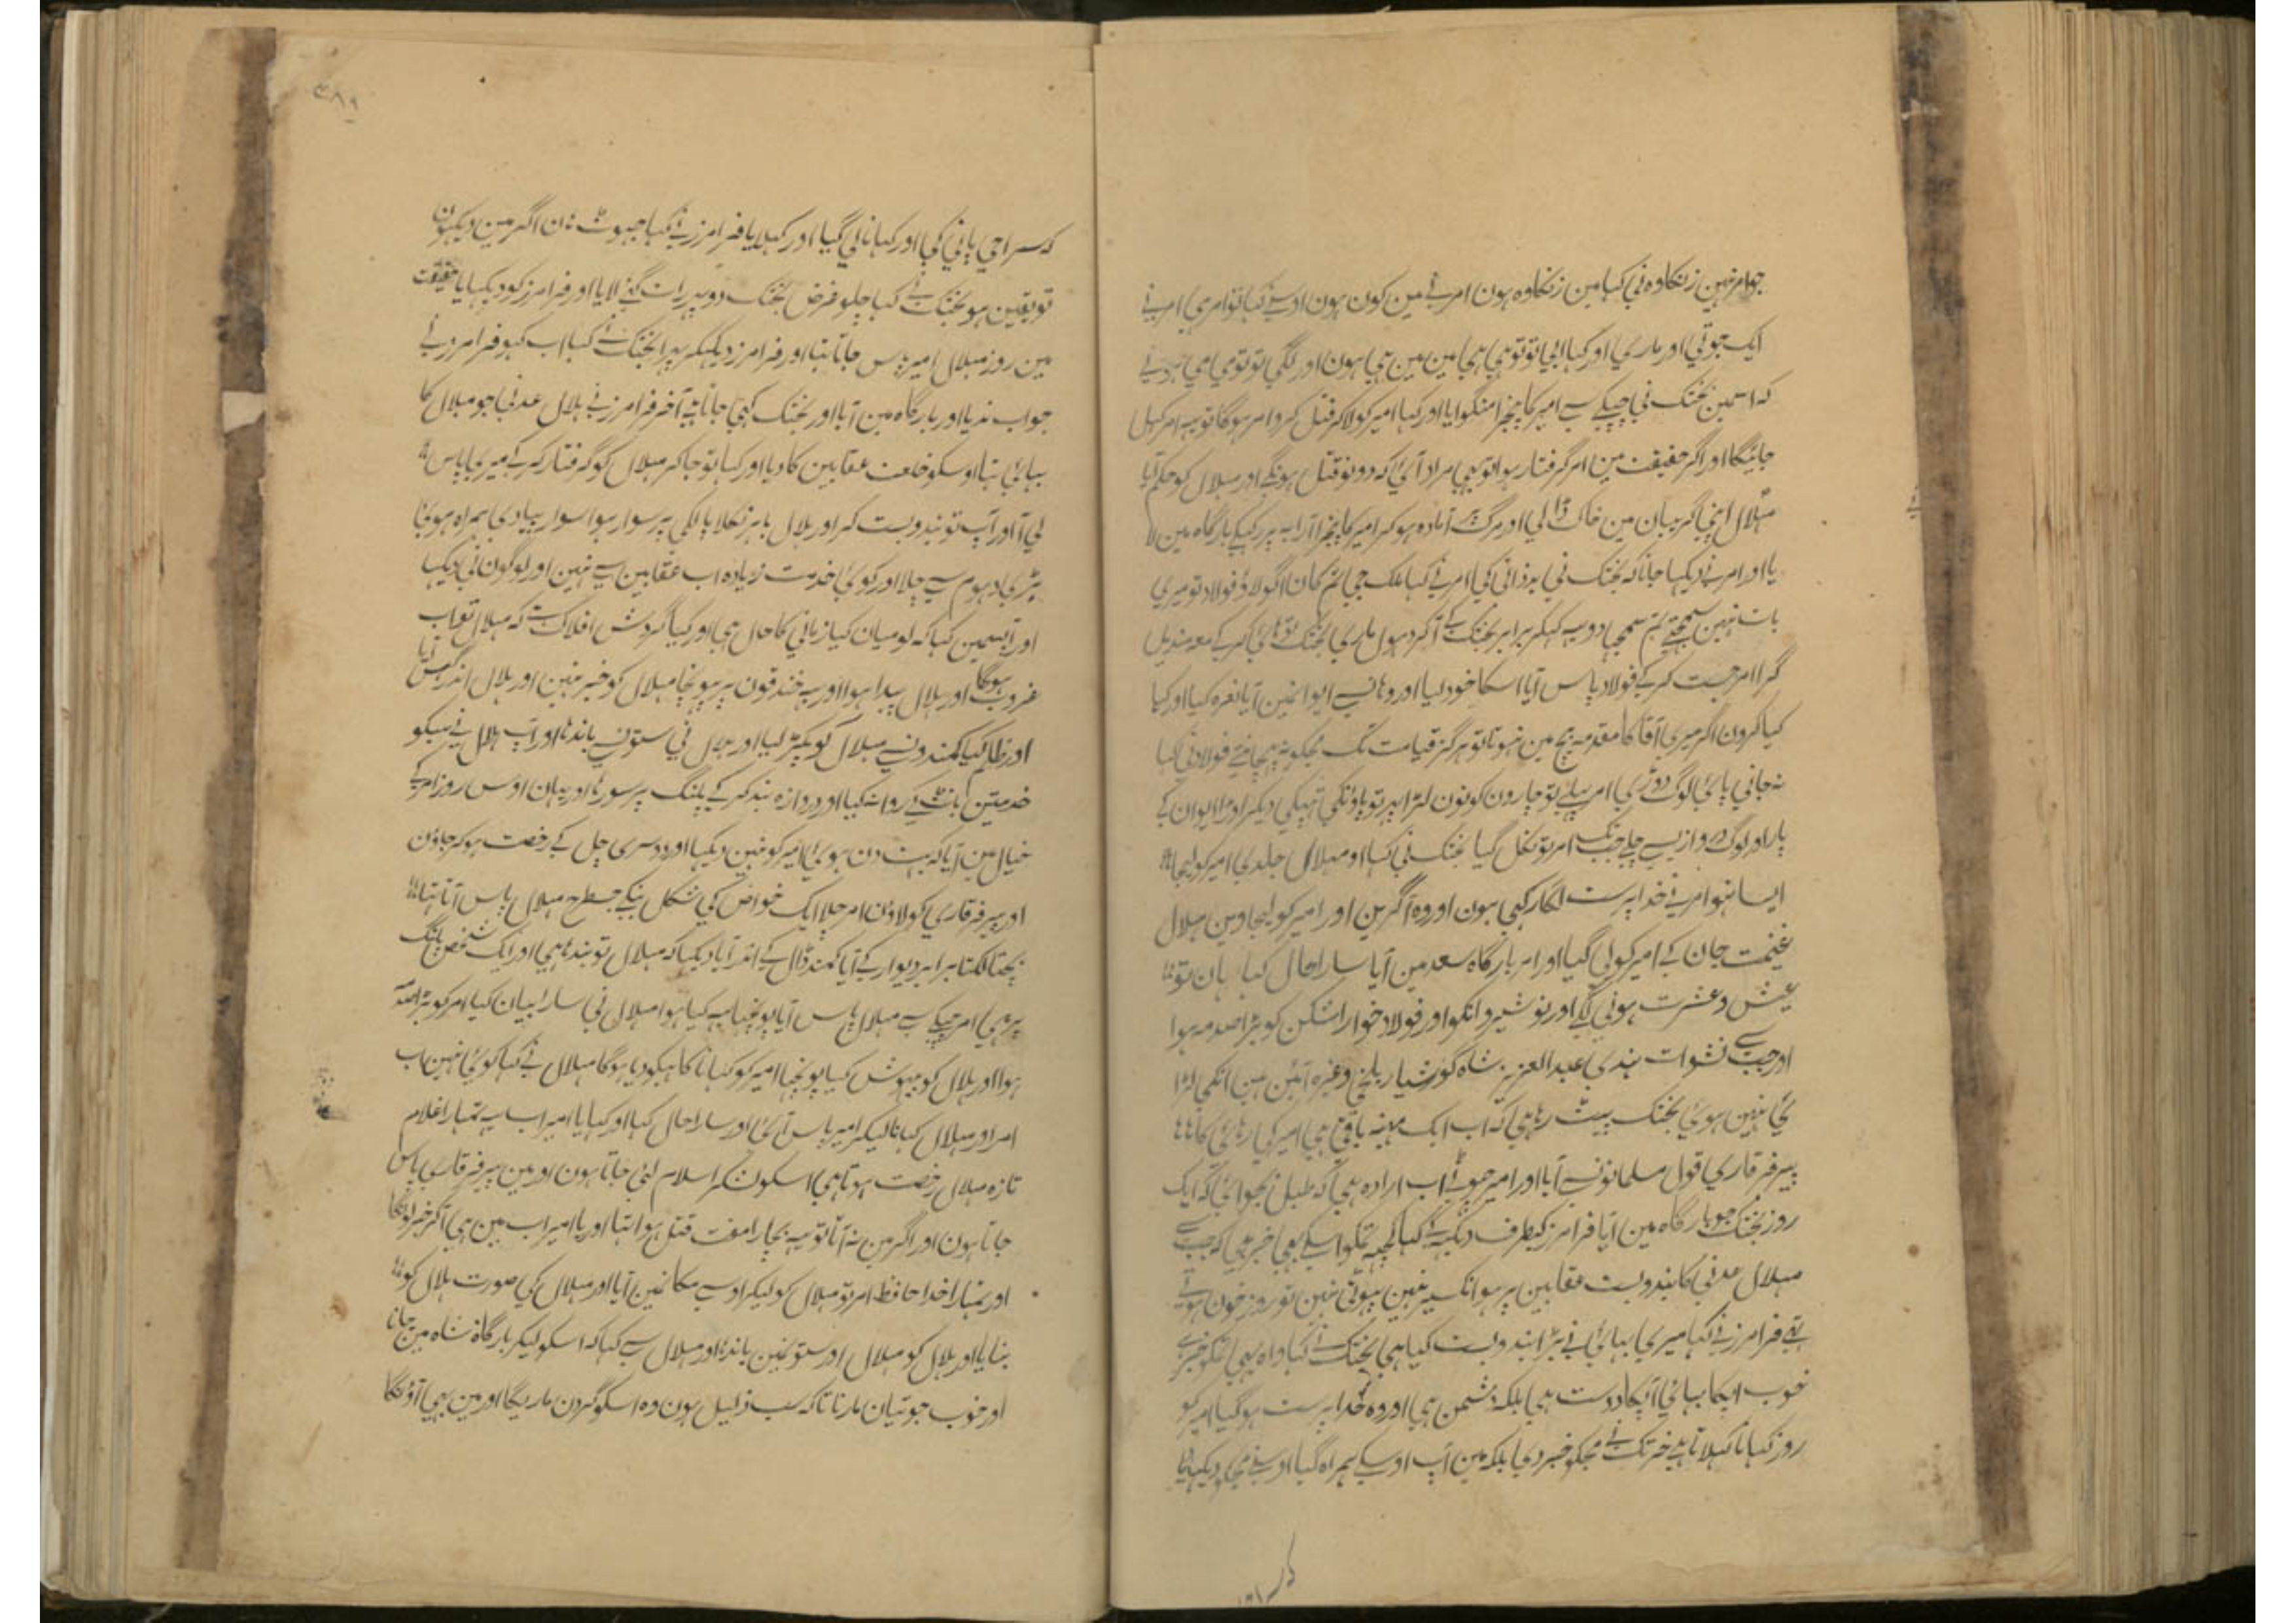 جو امر نہین زنکاوہ نی کہا مین زنکاوہ ہون امر نے مین کون ہون اوسنے کہا تو امر ہی امر نے
ایک جوتی اور ماری اور کہا ابی تو تو ہی ہی مین مین ہی ہون اور لگی تو تو می می ہونے
کہ اسمین بختک نی چپکے سے امیر کا پنجرا منگوایا اور کہا امیر کو لاکر قتل کرو امر ہوگا تو یہہ امر کہل
جائیگا اور اگر حقیقت مین امر گرفتار ہوا تو بہی مراد آئی کہ دونو قتل ہونگے اور مہلال کو حکم آیا
مہلال اپنی گریبان مین خاک ڈالی اور مرگ پہ آمادہ ہو کر امیر کا پنجرا ارابہ پر رکہکے بارگاہ مین لا
یا اور امر نے دیکہا جانا کہ بختک نی بدذاتی کی امر نے کہا ملک جی تم کمان اگولاد فولاد تو میری
بات نہین سمجہتے تم سمجہا دو یہہ کہکر برابر بختک کے آکر دہول ماری بختک کرکے معہ مندیل
گرا امر جست کر کے فولاد پاس آیا اسکا خود لیا اور وہانسے ایوانمین آیا نعرہ کیا اور کہا
کیا کرون اگر میری آقا کا مقدمہ بیچ مین نہوتا تو ہرگز قیامت تک مجکو نہ پہچانتے فولاد نی کہا
نہ جانی پائی لوگ دوڑی امر پہلے تو چارون کونون لڑا پہر تو پاونکی تہپکی دیکر اوڑا ایوان کے
پار اور لوگ دروازیسے چلے جبتک امر تو نکل گیا بختک نی کہا او مہلال جلدی امیر کو لیجا
ایسا نہو امر نے خدا پرست للکار کہی ہون اور وہ آگرین اور امیر کو لیجاوین مہلال
غنیمت جان کے امیر کو لی گیا اور امر بارگاہ سعد مین آیا سارا حال کہا یہان تو
عیش و عشرت ہونی لگے اور نوشیروانکو اور فولاد خوار اشکن کو بڑا صدمہ ہوا
اور جب سے نشوات ہندی عبد العزیز شاہ گورشیار بلخی وغیرہ آئین ہین انکی لڑا
ئی نہین ہوئی بختک پیٹ رہا ہی کہ اب ایک مہینہ باقی ہی امیر کی رہائی کا
پیر فرقاری قول مسلمانونسے آیا اور امیر چہوٹے اب ارادہ ہی کہ طبل بجوائی کہ ایک
روز بختک جو بارگاہ مین آیا فرامرز کیطرف دیکہہ کے کہا کچہہ تمکو اسکے بہی خبر ہی کہ جب سے
مہلال عدنی کا بندوبست عقابین پر ہوا نکسیر نہین پہوٹی نہین تو روز خون ہوتے
تہے فرامرز نے کہا میری بہائی نے بڑا بندوبست کیا ہی بختک نے کہا واہ یہی تمکو خبر ہے
خوب اپکا بہائی اپکا دوست ہی بلکہ دشمن ہی اور وہ خدا پرست ہو گیا امیر کو
روز کہانا کہلاتا ہے خرتک نے مجکو خبر دی بلکہ مین آپ اوسکے ہمراہ گیا اوسنے مجکو دیکہایا
کہ سراحی پانی کی اور کہانا لی گیا اور کہلایا فرامرز نے کہا جہوٹ ہان اگر مین دیکہون
تو یقین ہو بختک نے کہا چلو غرض بختک دوپہر رات گئے لایا اور فرامرز کو دیکہایا حقیقت
مین روز مہلال امیر پاس جاتا تہا اور فرامرز دیکہکر پہرا بختک نے کہا اب کہو فرامرز نے
جواب ندیا اور بارگاہ مین آیا اور بختک کہی جاتا ہے آخر فرامرز نے ہلال عدنی جو مہلال کا
بہائی تہا اوسکو خلعت عقابین کا دیا اور کہا تو جاکر مہلال کو گرفتار کر کے میری پاس
لی آ اور آپ تو بندوبست کر اور ہلال باہر نکلا پالکی پر سوار ہوا سوار پیادی ہمراہ ہوئی
بڑی دہوم سے چلا اور کوئی خدمت زیادہ اب عقابین سے نہین اور لوگون نی دیکہا
اور آپسمین کہا کہ لو میان کیا زمانی کا حال ہی اور کیا گردش افلاک ہے کہ مہلال تو اب
غروب ہوگا اور ہلال پیدا ہوا اور یہ خندقون پر پہونچا مہلال کو خبر نہین اور ہلال اندر گہس آیا
اور ظلم کیا کمندونسے مہلال کو پکڑ لیا اور ہلال نی ستونسے باندہا اور آپ ہلال نے سبکو
خدمتین بانٹ کے روانہ کیا اور دروازہ بند کر کے پلنگ پر سو رہا اور یہان اوس روز امر کے
خیال مین آیا کہ بہت دن ہوئی امیر کو نہین دیکہا اور دوسری چل کے رخصت ہو کر جاون
اور پیر فرقاری کو لاون امر چلا ایک خواص کی شکل بنکے جسطرح مہلال پاس آتا تہا
بچتا لکتا برابر دیوار کے آیا کمند ڈال کے اندر آیا دیکہا کہ مہلال تو بندہا ہی اور ایک شخص پلنگ
پر ہی امر چپکے سے مہلال پاس آیا پونچہا یہہ کیا ہوا مہلال نی سارا بیان کیا امر کو بڑا صدمہ
ہوا اور ہلال کو بیہوش کیا پونچہا امیر کو کہانا کاہیکو دیا ہوگا مہلال نے کہا کوئی نہین اب
امر اور مہلال کہانا لیکر امیر پاس آئی اور سارا حال کہا اور کہا یا امیر اب یہ تمہارا غلام
تازہ مہلال رخصت ہوتا ہی اسکو لشکر اسلام لئی جاتا ہون اور مین پیر فرقاری پاس
جاتا ہون اور اگر مین نہ آتا تو یہہ بچارا مفت قتل ہوا تہا اور یا امیر اب مین ہی آکر خبر لونگا
اور تمہارا خدا حافظ امر تو مہلال کو لیکر اوسی مکانمین آیا اور مہلال کی صورت ہلال کو
بنایا اور ہلال کو مہلال اور ستونمین باندہا اور مہلال سے کہا کہ اسکو لیکر بارگاہ شاہ مین جانا
اور خوب جوتیان مارنا تاکہ سب ذلیل ہون وہ اسکو گردن ماریگا اور مین بہی آؤنگا